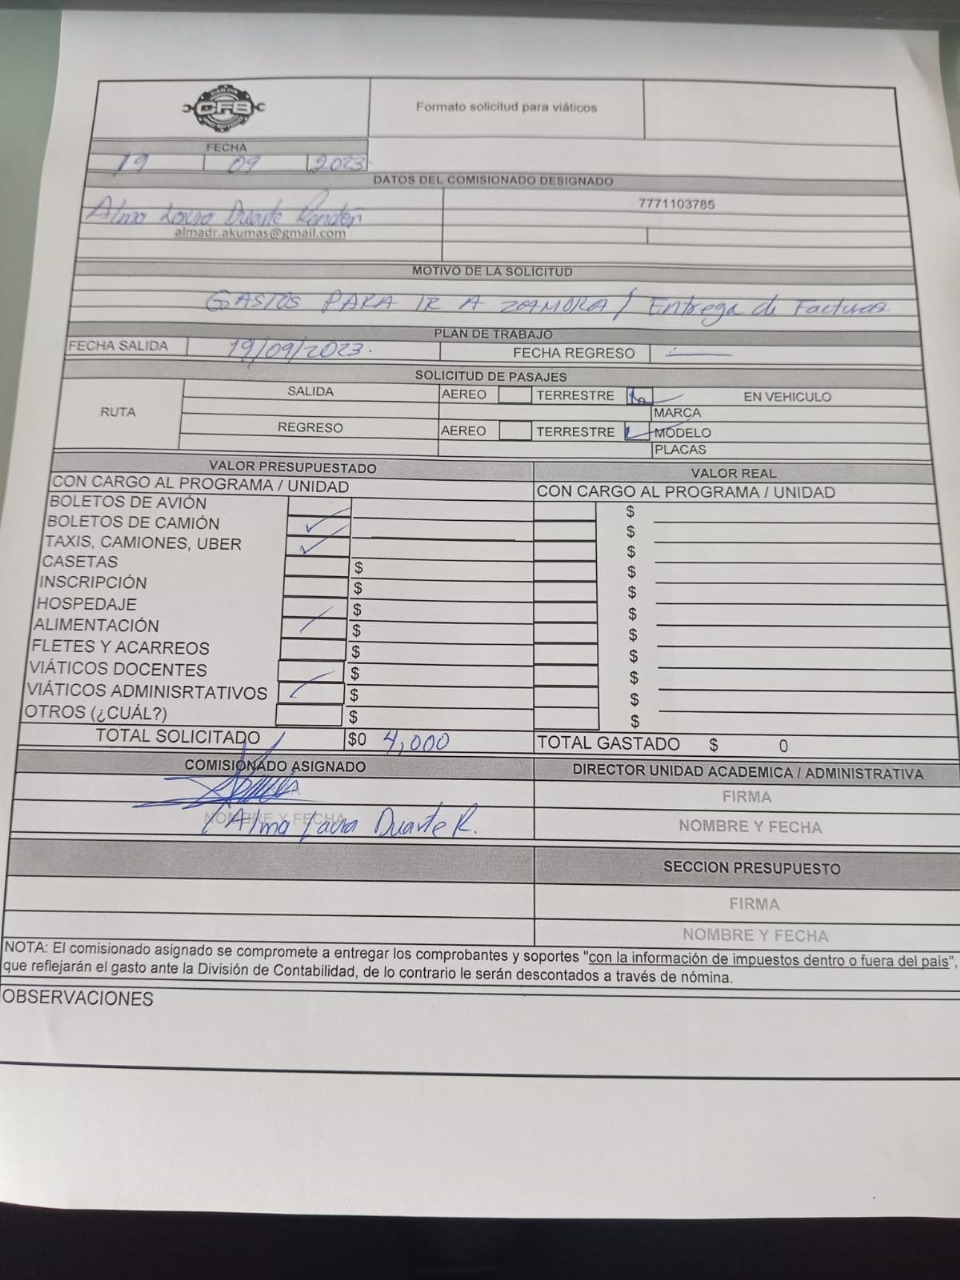 CFB
Formato solicitud para viáticos
FECHA
19 09 2023
DATOS DEL COMISIONADO DESIGNADO
Alma Laura Duarte Rendón 7771103785
almadr.akumas@gmail.com
MOTIVO DE LA SOLICITUD
GASTOS PARA IR A ZAMORA / Entrega de Facturas.
PLAN DE TRABAJO
FECHA SALIDA 19/09/2023. FECHA REGRESO
SOLICITUD DE PASAJES
SALIDA AEREO TERRESTRE EN VEHICULO
RUTA MARCA
REGRESO AEREO TERRESTRE MODELO
PLACAS
VALOR PRESUPUESTADO VALOR REAL
CON CARGO AL PROGRAMA / UNIDAD CON CARGO AL PROGRAMA / UNIDAD
BOLETOS DE AVIÓN $
BOLETOS DE CAMIÓN $
TAXIS, CAMIONES, UBER $
CASETAS $ $
INSCRIPCIÓN $ $
HOSPEDAJE $ $
ALIMENTACIÓN $ $
FLETES Y ACARREOS $ $
VIÁTICOS DOCENTES $ $
VIÁTICOS ADMINISRTATIVOS $ $
OTROS (¿CUÁL?) $ $
TOTAL SOLICITADO $0 4,000 TOTAL GASTADO $ 0
COMISIONADO ASIGNADO DIRECTOR UNIDAD ACADEMICA / ADMINISTRATIVA
FIRMA
NOMBRE Y FECHA Alma Laura Duarte R. NOMBRE Y FECHA
SECCION PRESUPUESTO
FIRMA
NOMBRE Y FECHA
NOTA: El comisionado asignado se compromete a entregar los comprobantes y soportes "con la información de impuestos dentro o fuera del país",
que reflejarán el gasto ante la División de Contabilidad, de lo contrario le serán descontados a través de nómina.
OBSERVACIONES